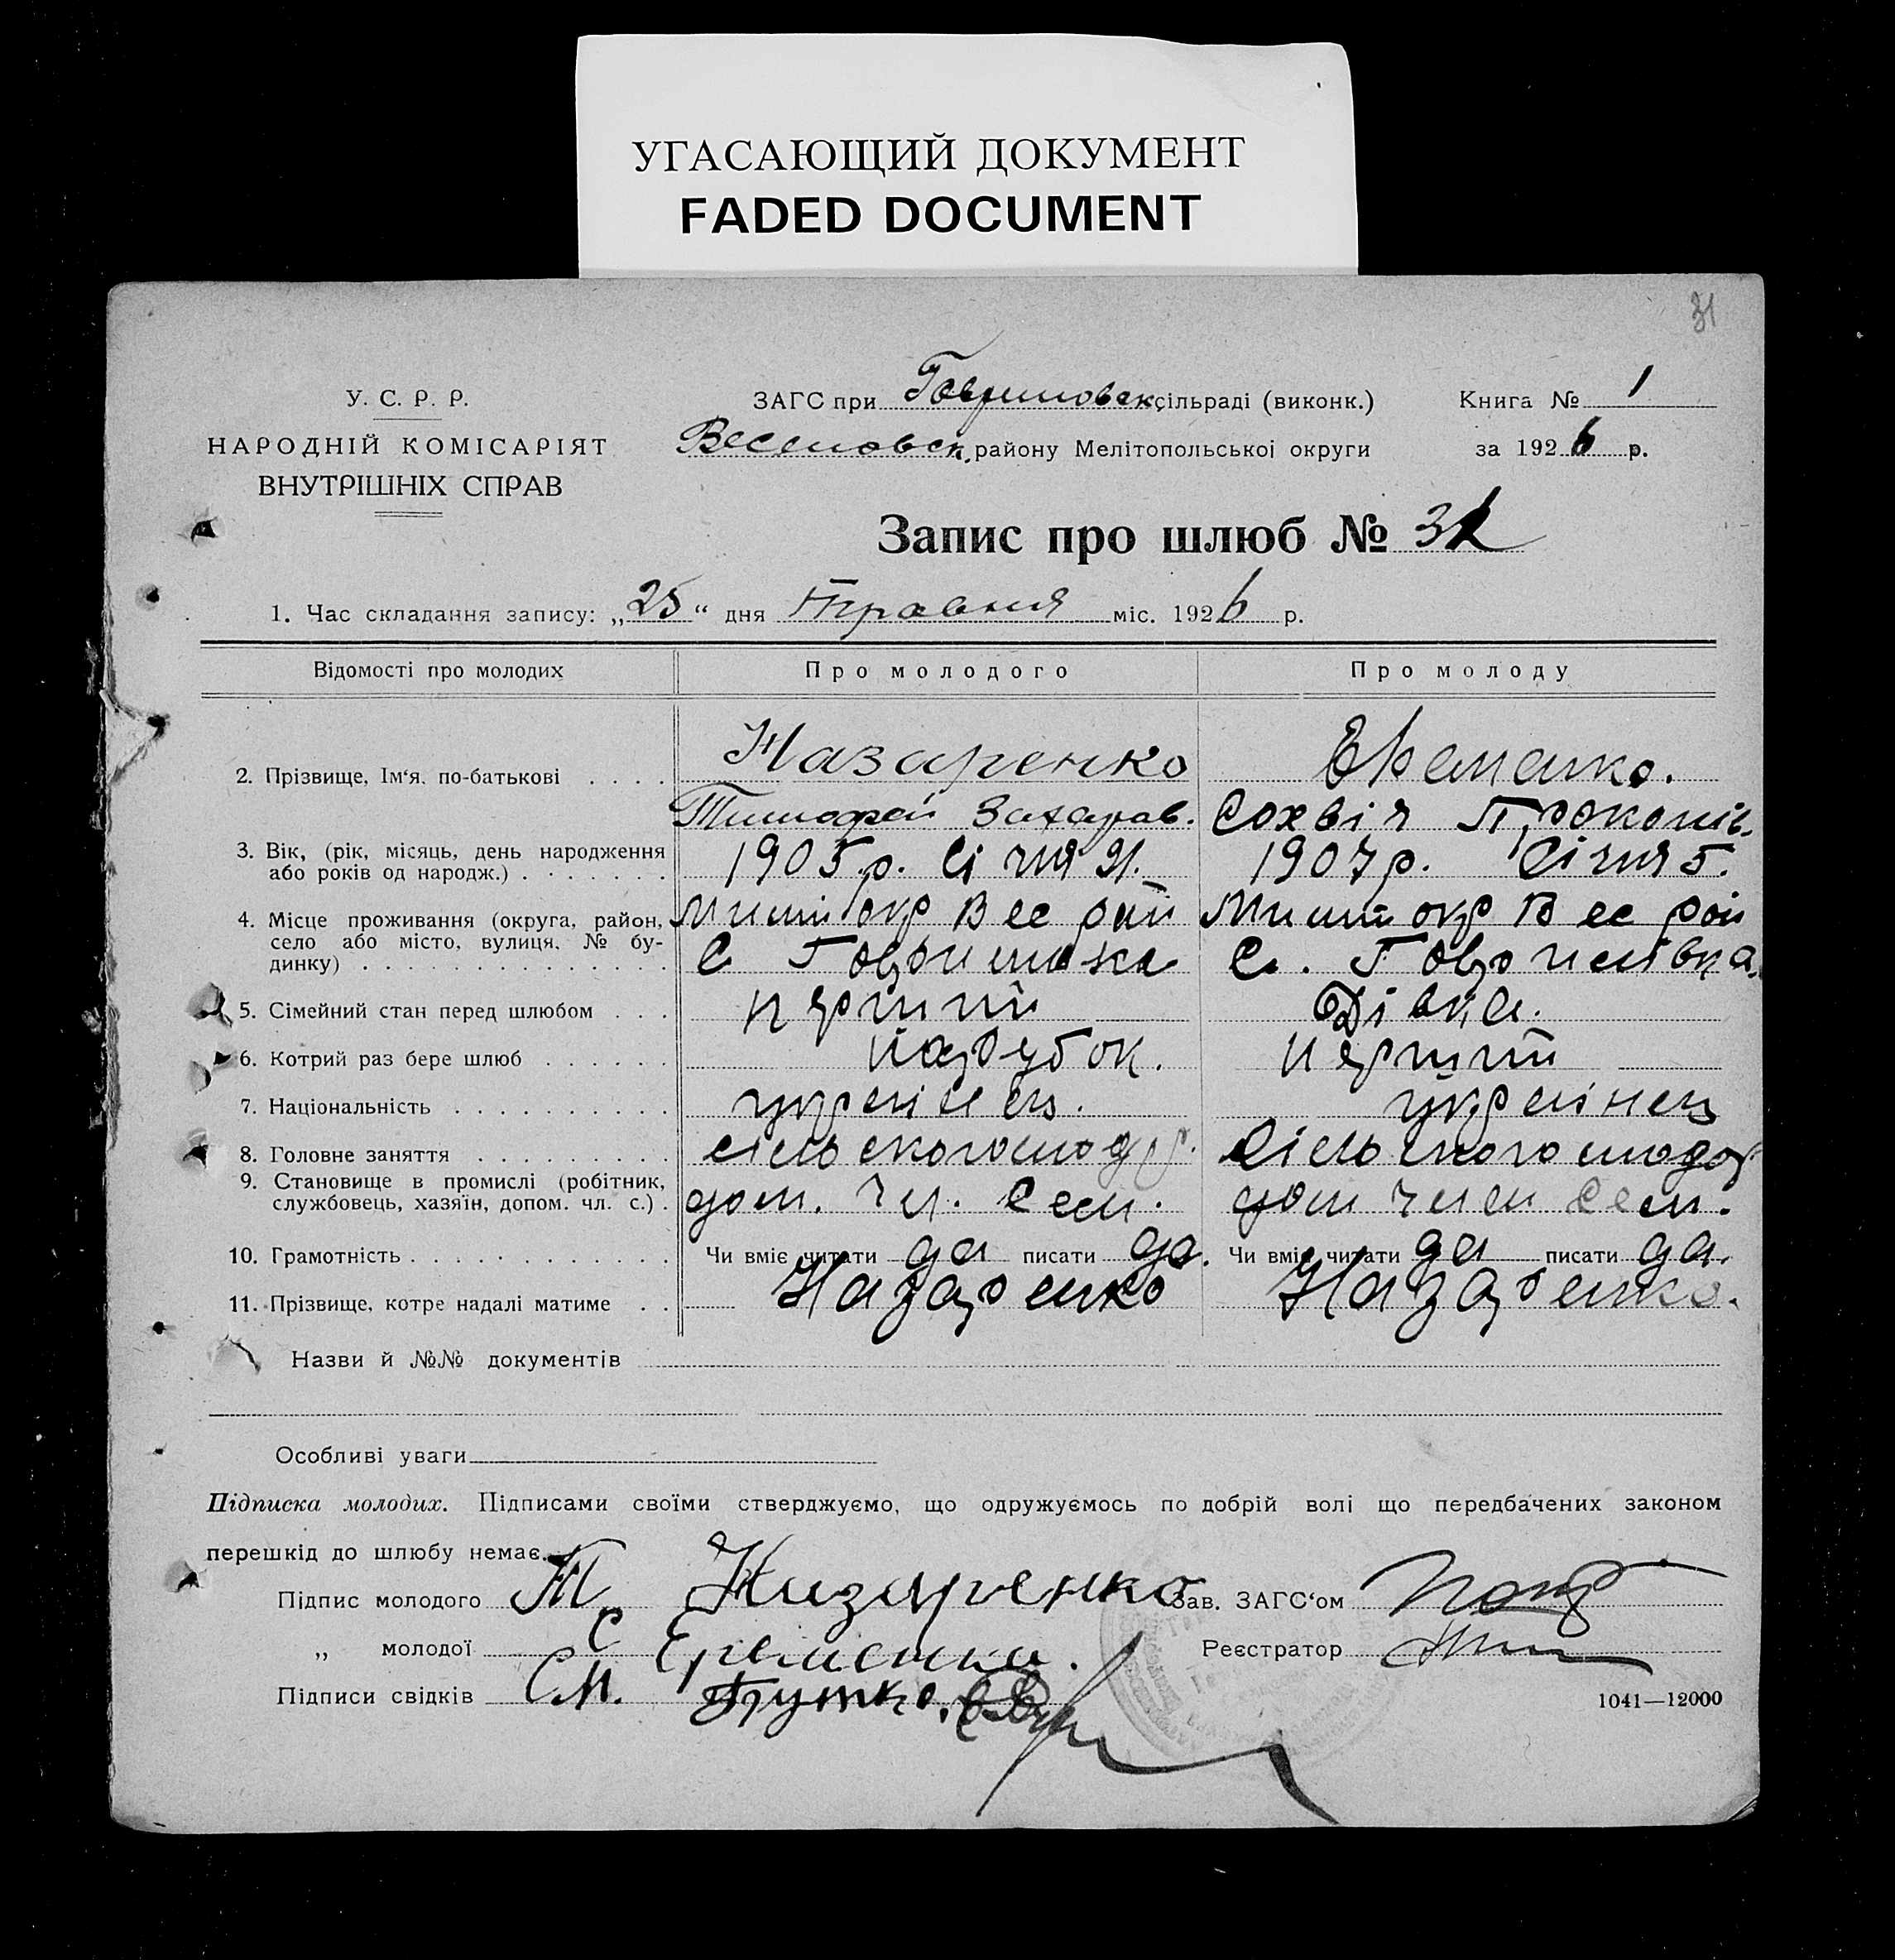 УГАСАЮЩИЙ ДОКУМЕНТ
FADED DOCUMENT
31
У. С. Р. Р.
НАРОДНІЙ КОМІСАРІЯТ
ВНУТРІШНІХ СПРАВ
ЗАГС при Гавриловск. сільраді (виконк.)
Веселовск. району Мелітопольськоі округи
Книга № 1
за 1926 р.
Запис про шлюб № 31
1. Час складання запису: „25“ дня Травня міс. 1926 р.
Відомості про молодих Про молодого Про молоду
2. Прізвище, Ім'я, по-батькові . . . . Назаренко
Тимофей Захаров. Сохвія Прокопів.
3. Вік, (рік, місяць, день народження
або років од народж.) . . . . . . . 1905 р. Січня 21. 1907 р. Січня 5.
4. Місце проживання (округа, район,
село або місто, вулиця, № бу-
динку) . . . . . . . . . . . . . .
Мелит окр Вес рай Мелит окр Вес рай
С Гаврилівка С. Гаврилівка.
5. Сімейний стан перед шлюбом . . . перший Дівка.
6. Котрий раз бере шлюб . . . . . . парубок. перший
7. Національність . . . . . . . . . . українец. українец
8. Головне заняття . . . . . . . . . сільськогосподр. Сільськогосподар
9. Становище в промислі (робітник,
службовець, хазяїн, допом. чл. с.) . дом. чл. Сем. дом член Сем.
10. Грамотність . . . . . . . . . . . . Чи вміє читати да писати да. Чи вміє читати да писати да.
11. Прізвище, котре надалі матиме . . Назаренко Назаренко.
Назви й №№ документів
Особливі уваги
Підписка молодих. Підписами своїми стверджуємо, що одружуємось по добрій волі що передбачених законом
перешкід до шлюбу немає.
Підпис молодого Т. Назаренко Зав. ЗАГС'ом
„ молодої С Еременко. Реєстратор
Підписи свідків
1041—12000